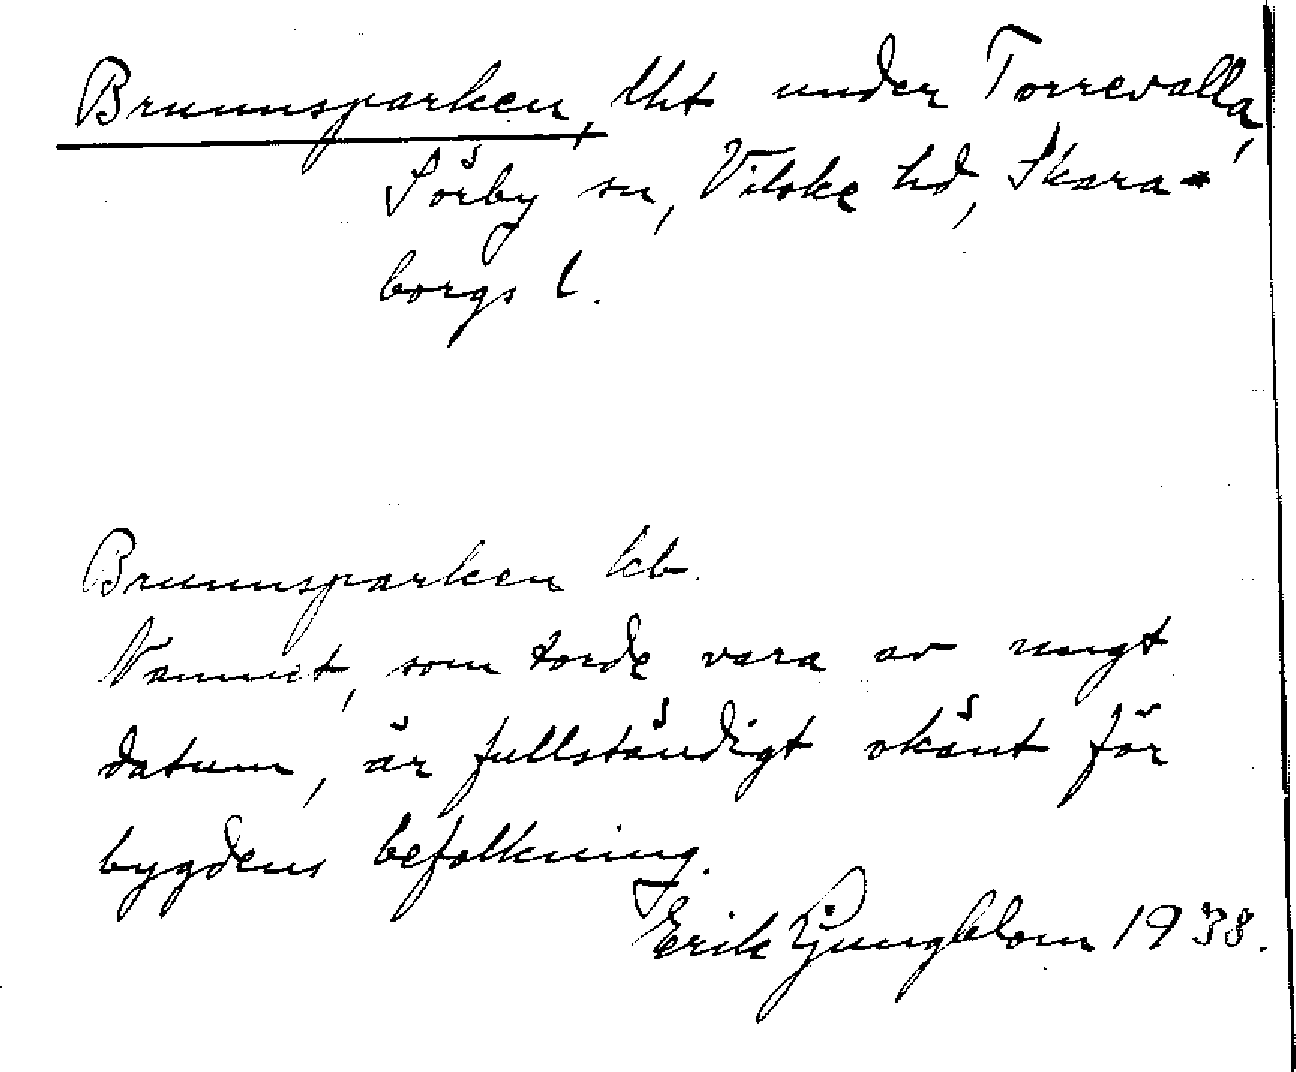 Brunnsparken, lht under Torrevalla,
Sörby sn, Vilske hd, Skara-
borgs l.
Brunnsparken kb.
Namnet, som torde vara av ungt
datum, är fullständigt okänt för
bygdens befolkning.
Erik Ljungblom 1938.